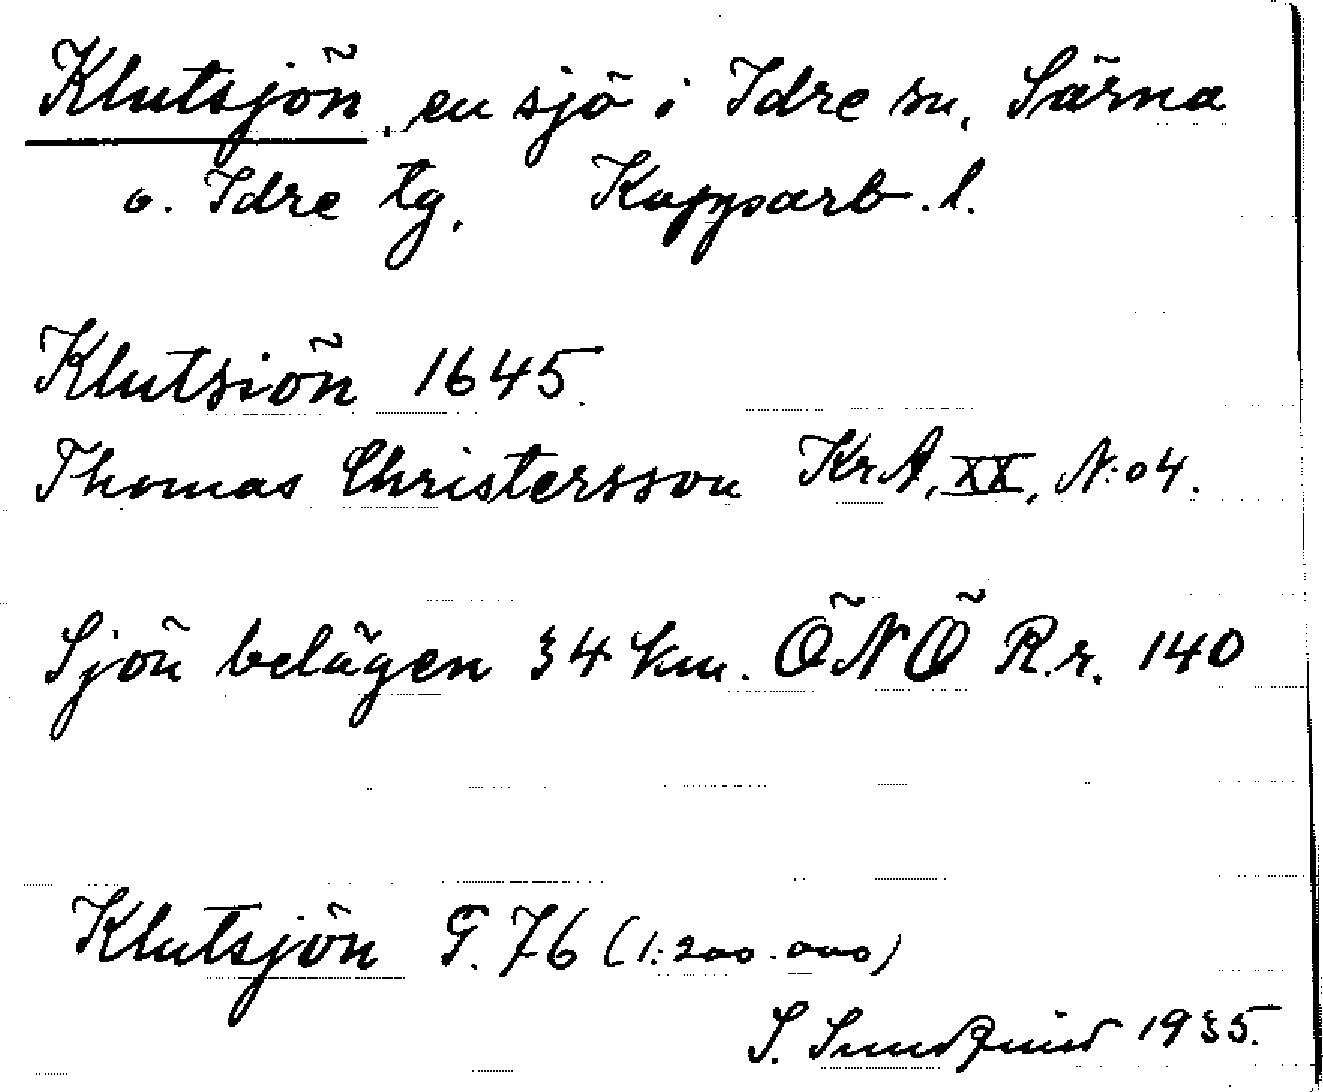 Klutsjön, en sjö i Idre sn, Särna
o. Idre tg, Kopparb. l.
Klutsiön 1645.
Thomas Christersson KrA, XX, N:o 4.
Sjön belägen 34 km. ÖNÖ R.r. 140
Klutsjön G. 76 (1:200.000)
S. 1935.